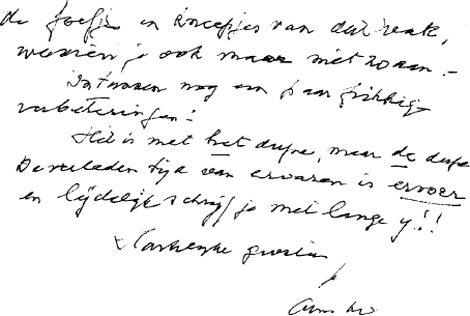 de foefjes en kneepjes van dat vak,
wennen je ook maar niet zo aan.-
Intussen nog een paar
verbeteringen:
Het is niet het dupe, maar de dupe
De verleden tijd van ervaren is ervoer
en lijdelijk schrijf je met lange y!!
Hartelyke groeten